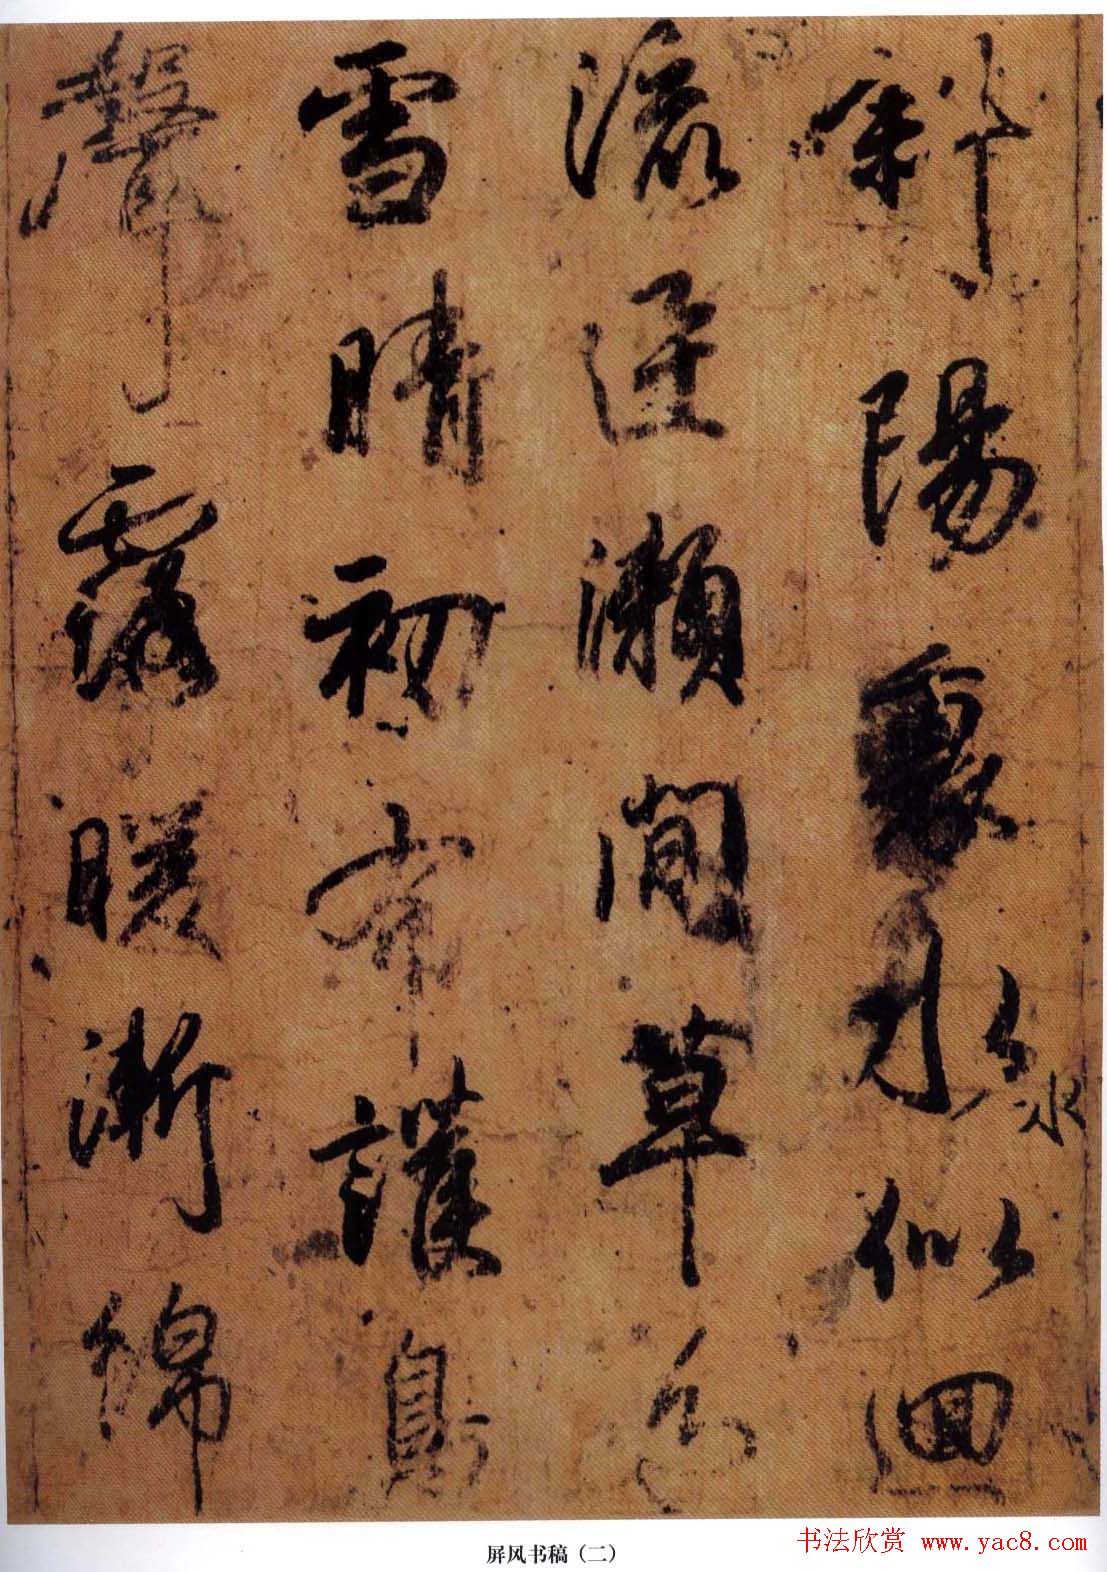 斜陽裏水水似迴
流迳瀨間草色
雪晴初布護鳥
聲露暖漸綿
屏风书稿（二）
书法欣赏 www.yac8.com